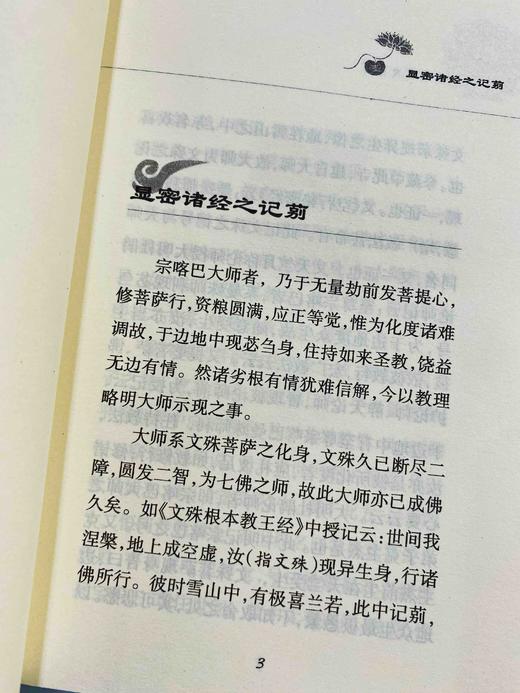 显密诸经之记莂
显密诸经之记莂
宗喀巴大师者，乃于无量劫前发菩提心，
修菩萨行，资粮圆满，应正等觉，惟为化度诸难
调故，于边地中现苾刍身，住持如来圣教，饶益
无边有情。然诸劣根有情犹难信解，今以教理
略明大师示现之事。
大师系文殊菩萨之化身，文殊久已断尽二
障，圆发二智，为七佛之师，故此大师亦已成佛
久矣。如《文殊根本教王经》中授记云：世间我
涅槃，地上成空虚，汝(指文殊)现异生身，行诸
佛所行。彼时雪山中，有极喜兰若，此中记莂，
3